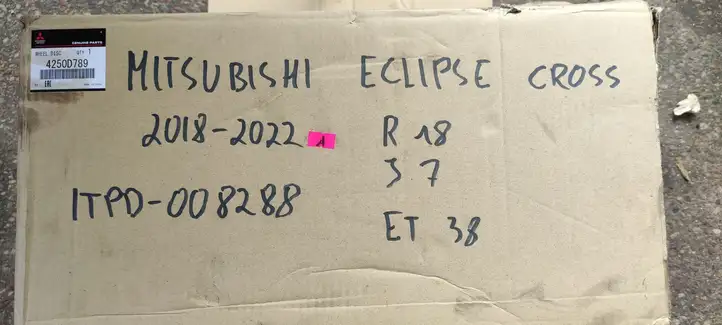 GENUINE PARTS
WHEEL, DISC QTY 1
4250D789
MITSUBISHI ECLIPSE CROSS
2018-2022 A R 18
J 7
ITPD-008288
ET 38